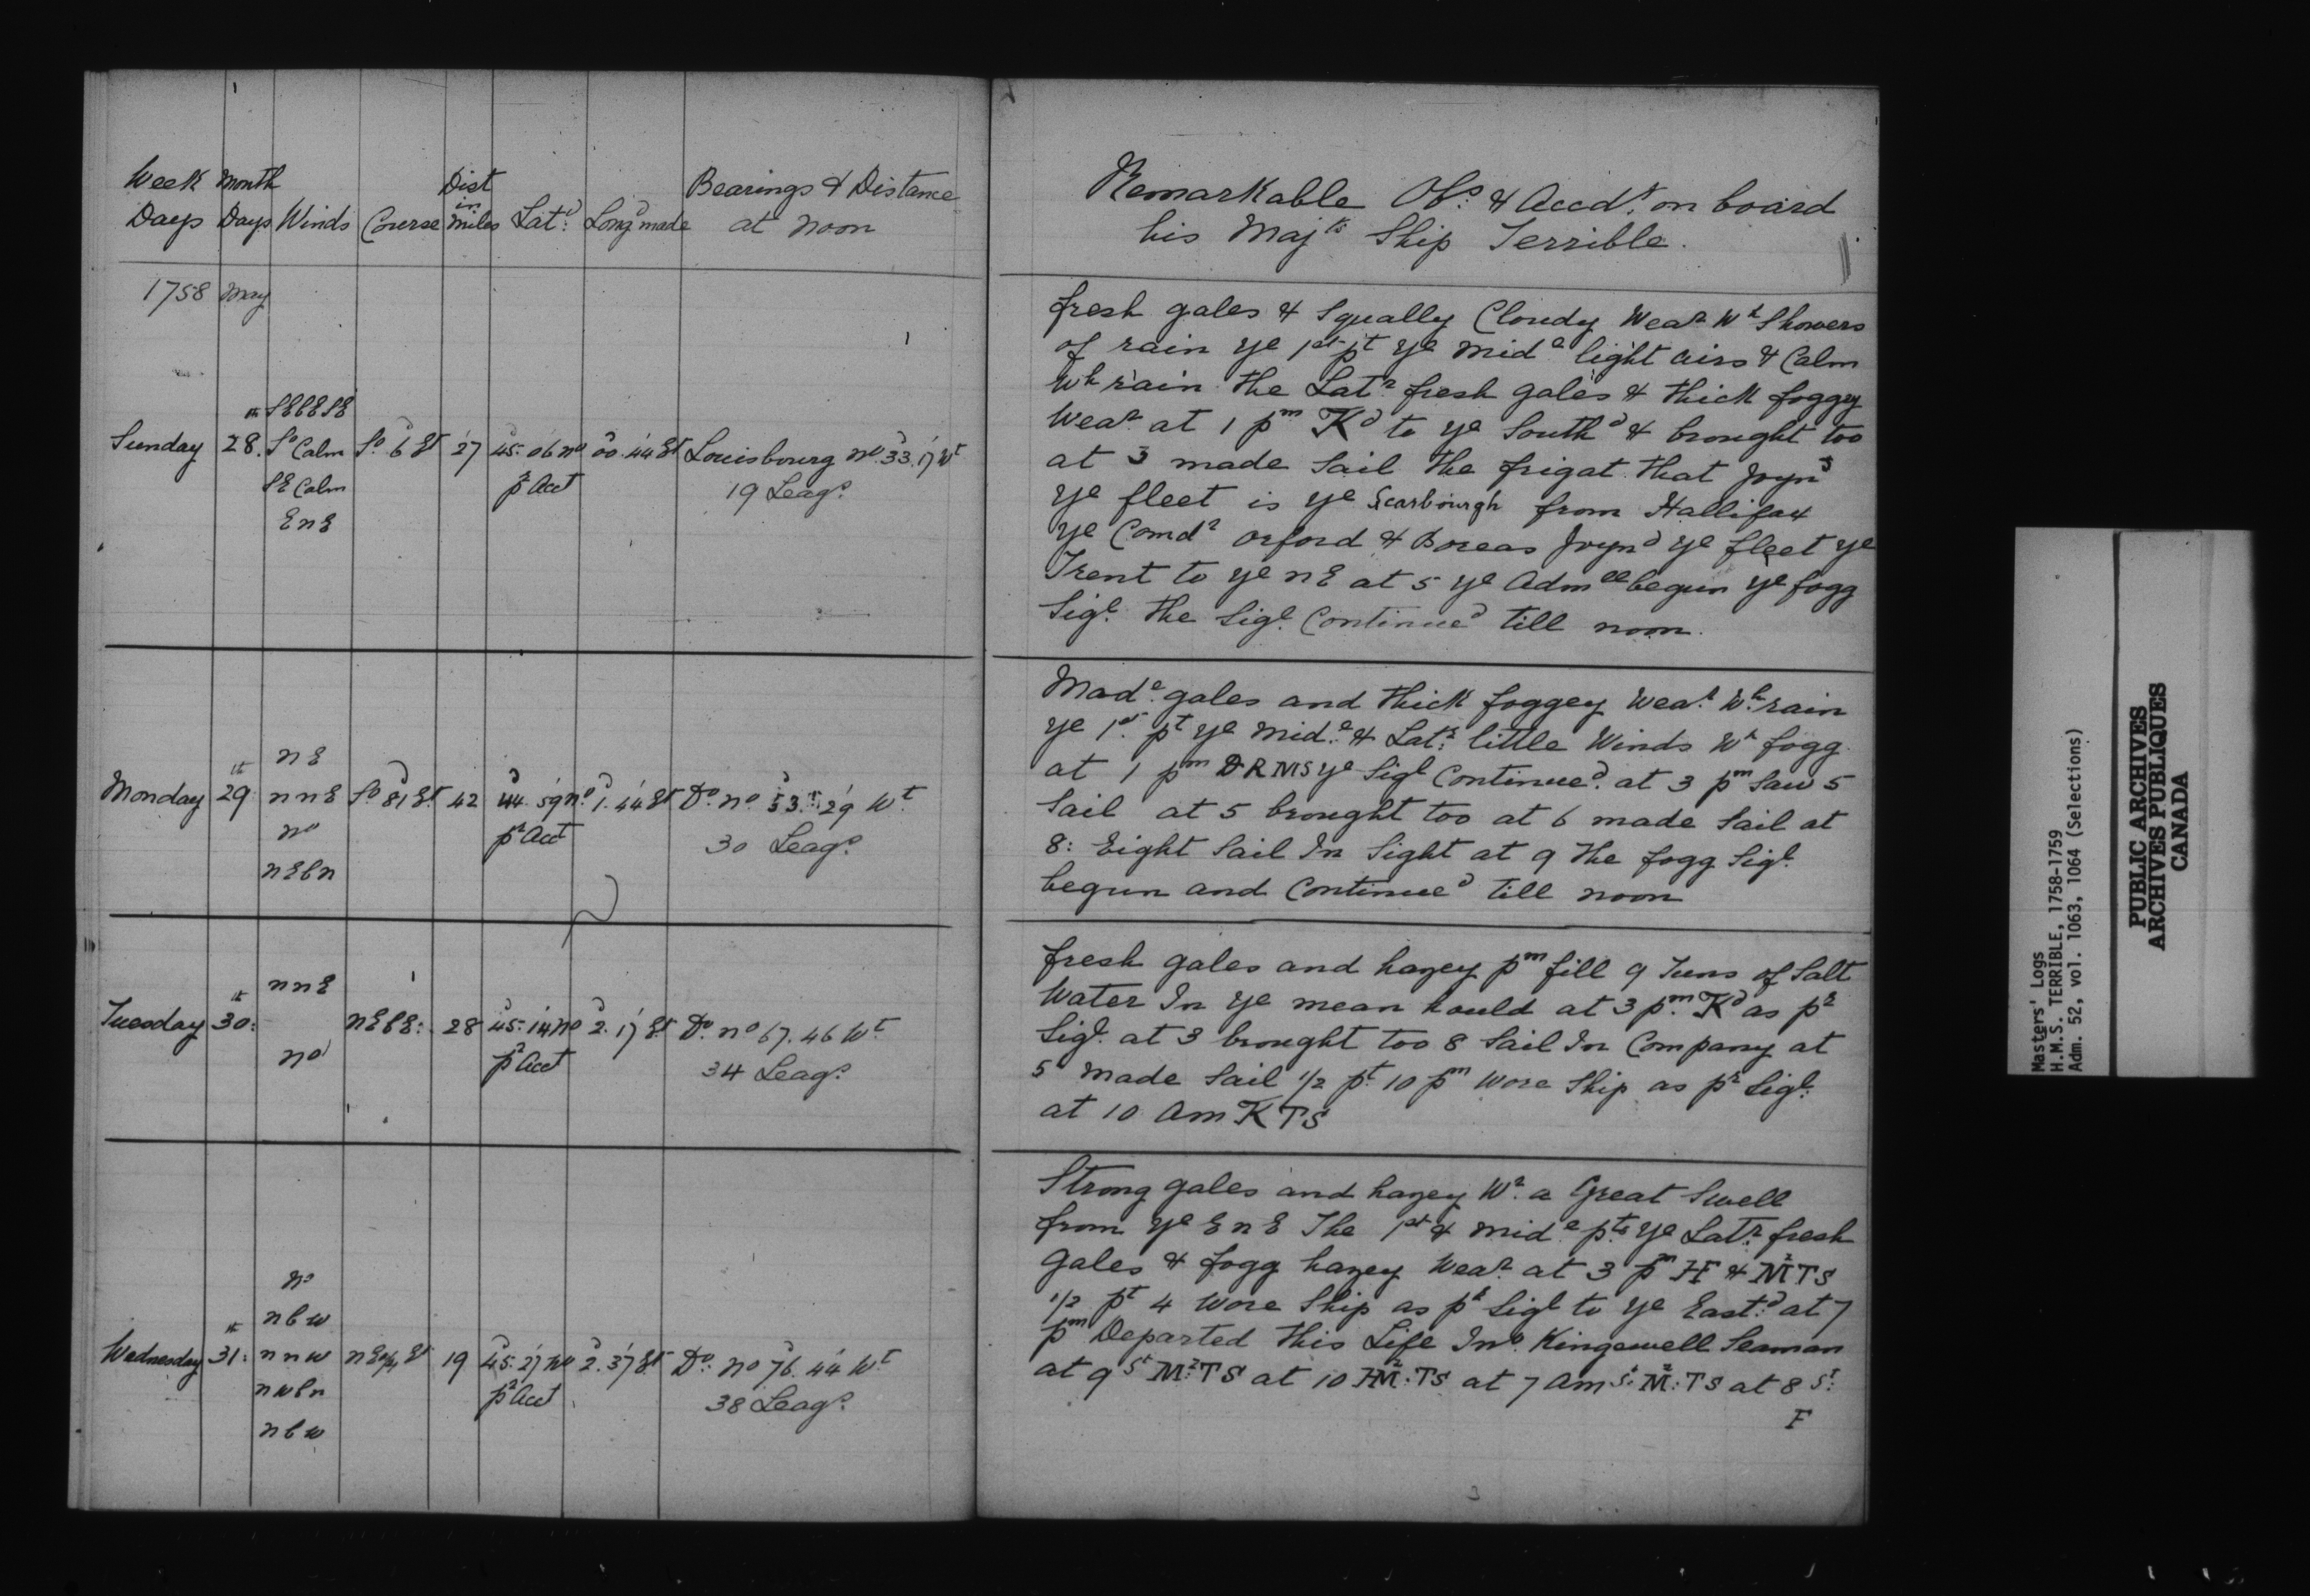 Week Month Dist Bearings & Distance
Days Days Winds Course in miles Latd: Longd made at Noon
1758 May
Sunday 28th. SEbE SE So 6 Et 27 45.06 No 00.44 Et Louisbourg No 33.17 Wt
So Calm pr Acct 19 Leags.
SE Calm
EnE
Monday 29th nE So 81 Et 42 44.59 no. 1.44 Et Do. no 53.29 Wt.
nnE pr Acct 30 Leags.
no
nEbn
Tuesday 30th: nnE nEbE: 28 45.14 no 2.17 Et. Do. no 67.46 Wt.
no pr Acct 34 Leags.
Wednesday 31th: no 19 45.27 No 2.37 Et Do: no 76.44 Wt.
nbw pr Acct 38 Leags.
nnw
nwbn
nbw
Remarkable Obs: & Accdts. on board
his Majts Ship Terrible.
fresh gales & Squally Cloudy Wear Wh Showers
of rain ye 1st pt ye mide light airs & Calm
Wh rain the Latr fresh gales & thick foggey
Wear at 1 pm TKd to ye Southd & brought too
at 3 made Sail the frigat that Joynd
ye fleet is ye Scarbourgh from Hallifax
ye Comdr Orford & Boreas Joynd ye fleet ye
Trent to ye nE at 5 ye Admll begun ye fogg
Sigl. the Sigl. Continued till noon.
Made. gales and thick foggey Wear. Wh. rain
ye 1st. pt ye Mide. & Latr. little Winds Wh fogg
at 1 pm DRMS ye Sigl Continued. at 3 pm Saw 5
Sail at 5 brought too at 6 made Sail at
8: Eight Sail In Sight at 9 the fogg Sigl.
begun and Continued till noon
fresh gales and hazey pm fill 9 Tuns of Salt
Water In ye mean hould at 3 pm. TKd as pr
Sigl. at 3 brought too 8 Sail In Company at
5 made Sail 1/2 pt. 10 pm Wore Ship as pr Sigl:
at 10 Am TKTS
Strong gales and hazey Wr. a Great Swell
from ye EnE The 1st & mide pts ye Latr: fresh
Gales & fogg hazey Wear. at 3 pm HF & MrTS
1/2 pt 4 Wore Ship as pr Sigl to ye Eastd: at 7
pm Departed this Life Jno. Kingswell Seaman
at 9 St Mr:TS at 10 HMr:TS at 7 Am St: Mr:TS at 8 St:
F
Masters' Logs
H.M.S. TERRIBLE, 1758-1759
Adm. 52, vol. 1063, 1064 (Selections)
PUBLIC ARCHIVES
ARCHIVES PUBLIQUES
CANADA